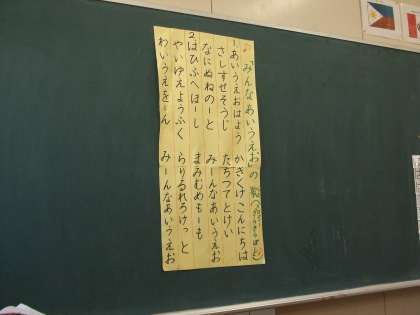 「みんなあいうえお」の
1あいうえおはよう　かきくけこんにちは
さしすせそうじ　たちつてとけい
なにぬねのーと　みーんなあいうえお
2はひふへほーし　まみむめもーも
やいゆえようふく　らりるれろけっと
わいうえをーん　みーんなあいうえお